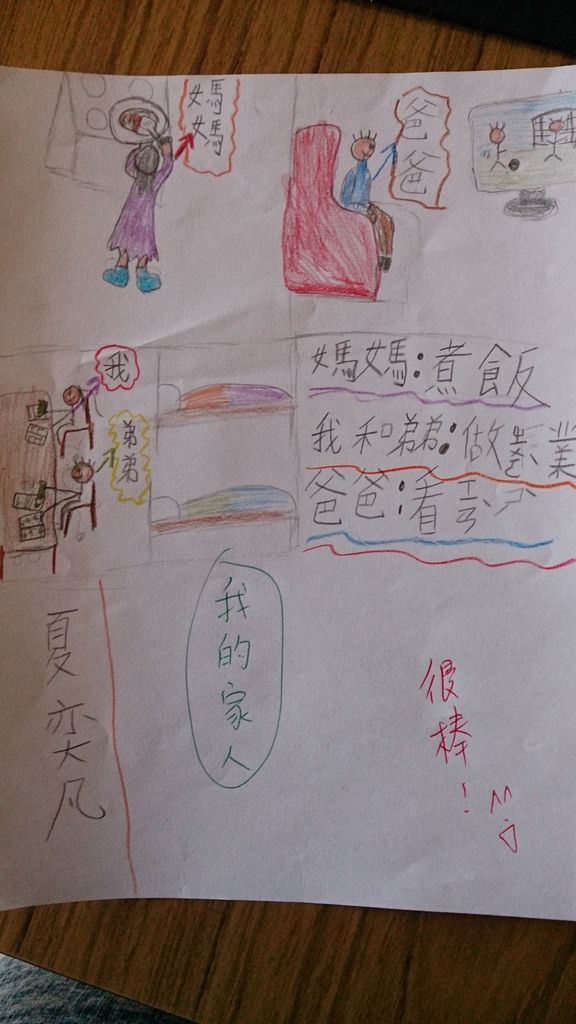 媽媽
爸爸
我
弟弟
媽媽:煮飯
我和弟弟:做 業
爸爸:看
我的家人
夏奕凡
很棒!